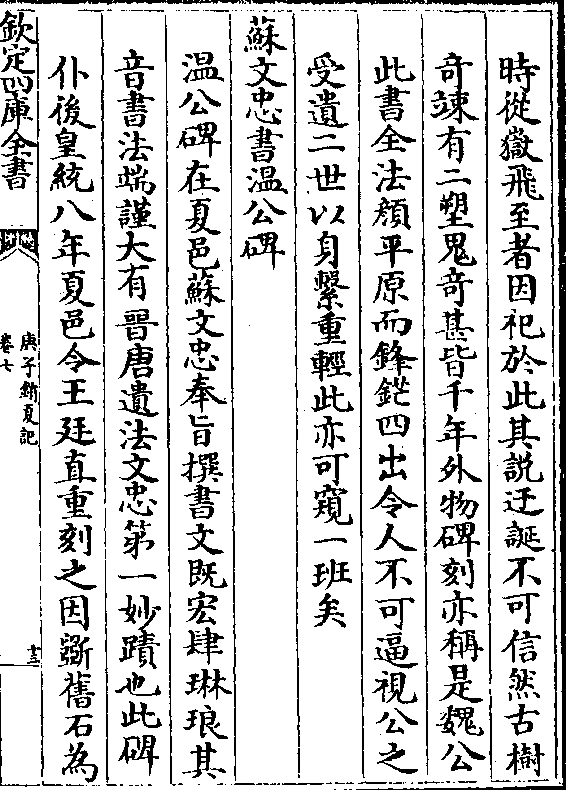 時從嶽飛至者因祀於此其說迂誕不可信然古樹
奇竦有二塑鬼奇甚皆千年外物碑刻亦稱是魏公
此書全法顏平原而鋒鋩四出令人不可逼視公之
受遺二世以身繫重輕此亦可窺一班矣
蘇文忠書溫公碑
溫公碑在夏邑蘇文忠奉旨撰書文既宏肆琳琅其
音書法端謹大有晉唐遺法文忠第一妙蹟也此碑
仆後皇統八年夏邑令王廷直重刻之因斵舊石為
欽定四庫全書
庚子銷夏記
卷七
十三